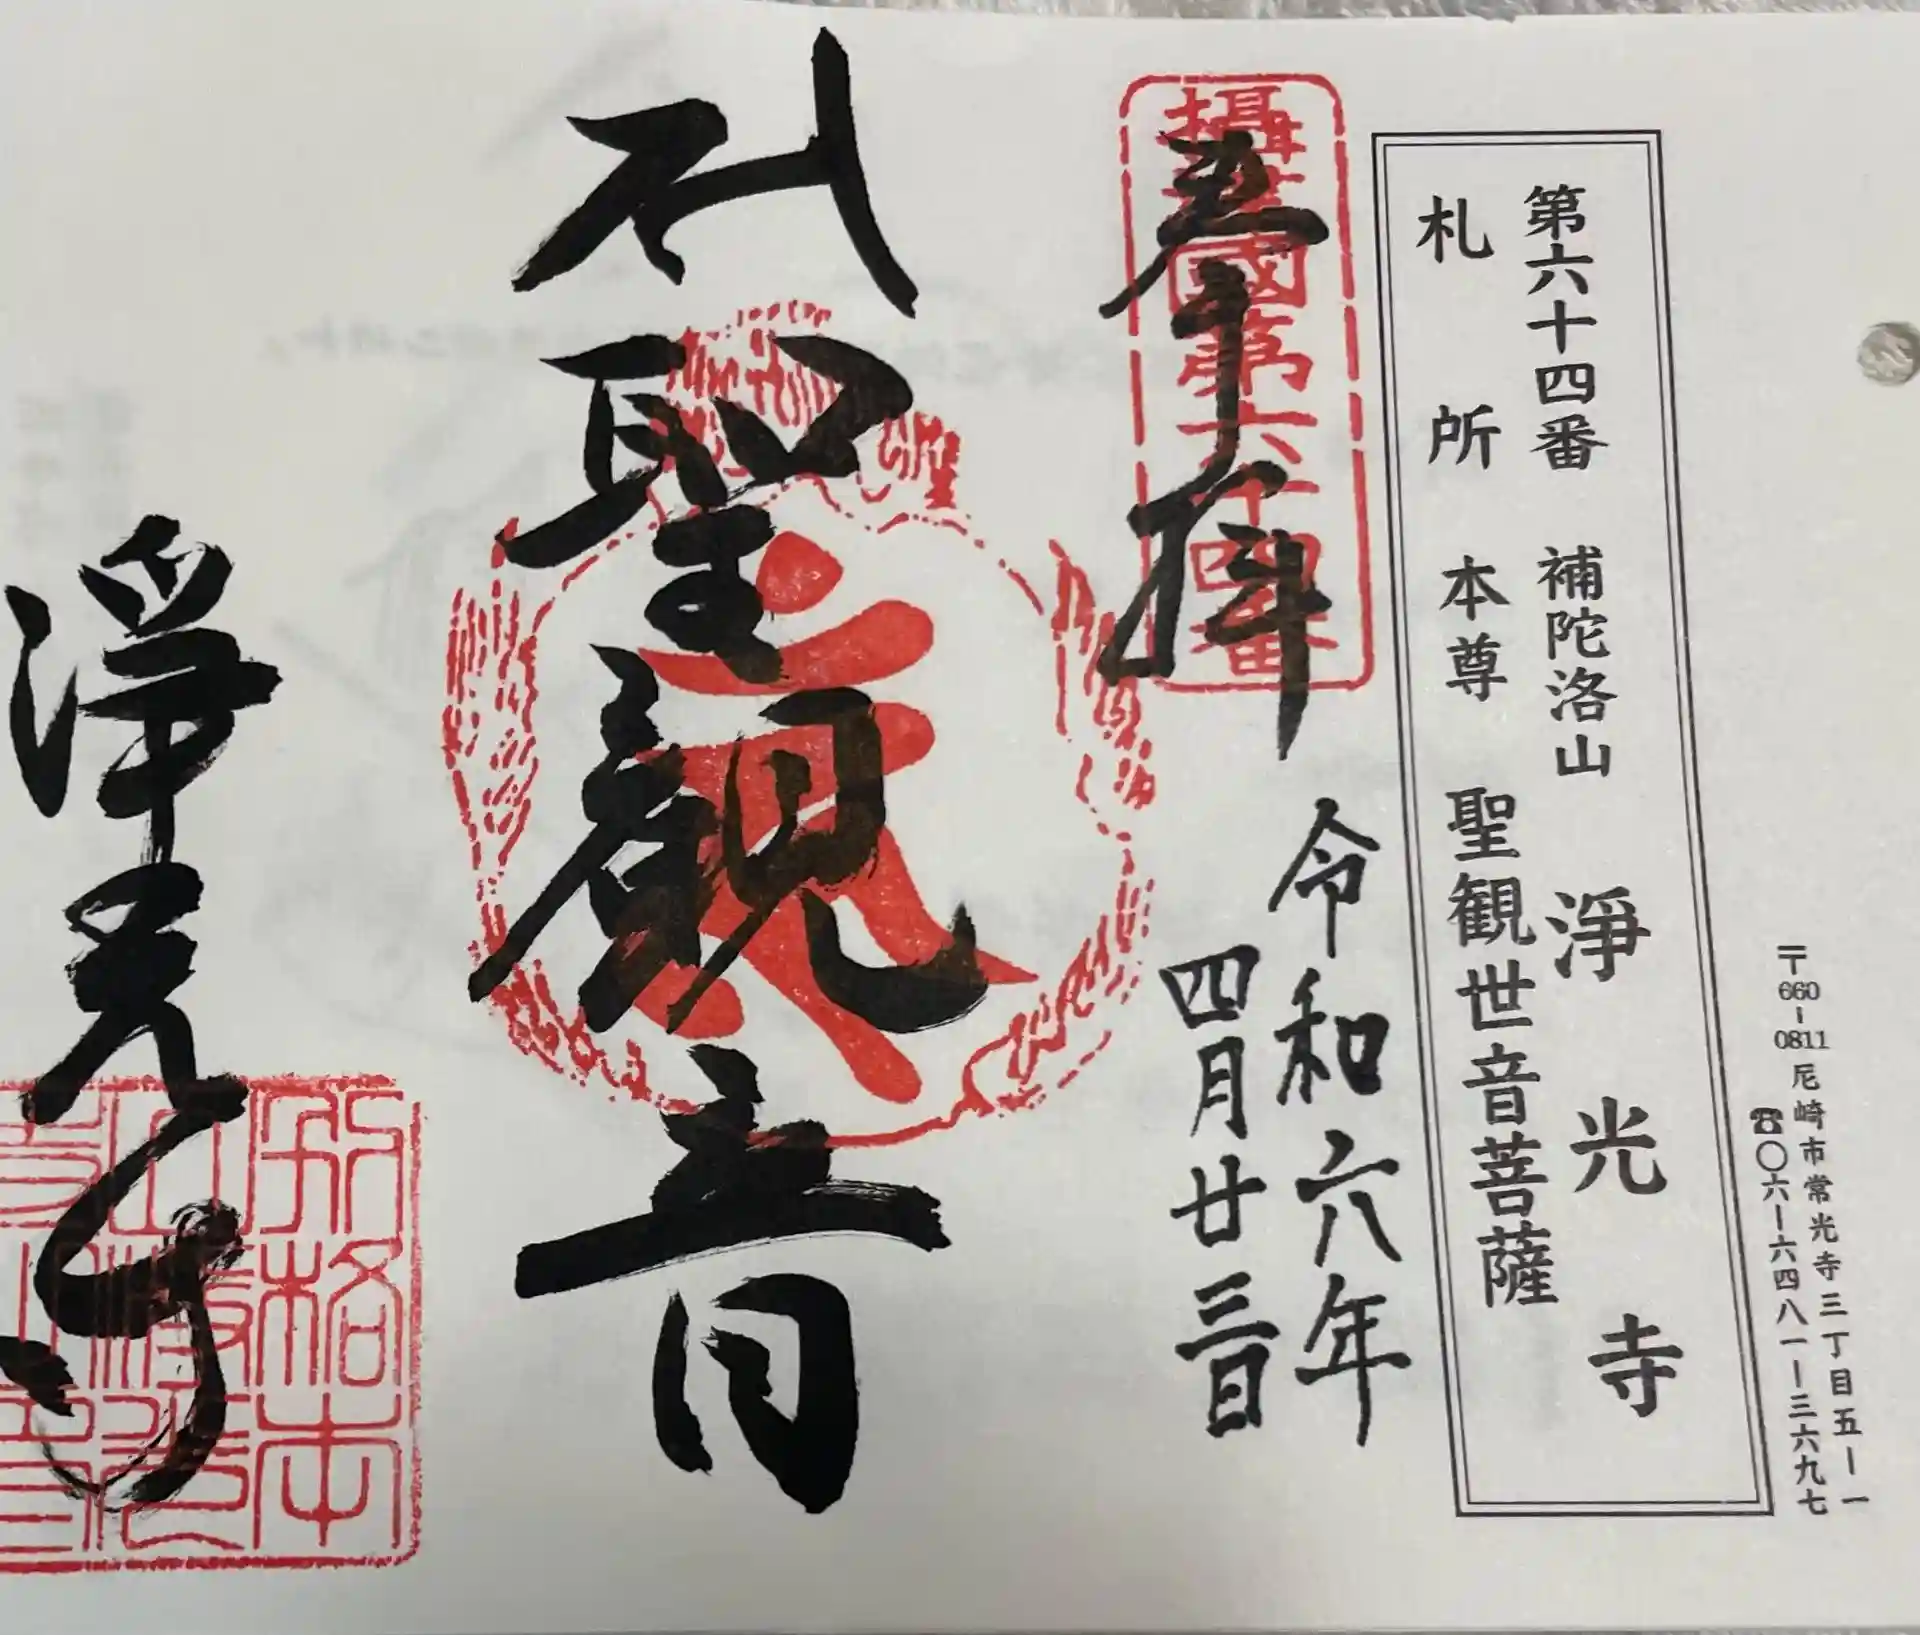 〒660-0811 尼崎市常光寺三丁目五ー一
☎〇六ー六四八一ー三六九七
第六十四番 補陀洛山 淨光寺
札所本尊 聖観世音菩薩
攝津國第六十四番
奉拝
令和六年
四月廿三日
聖觀音
淨光寺